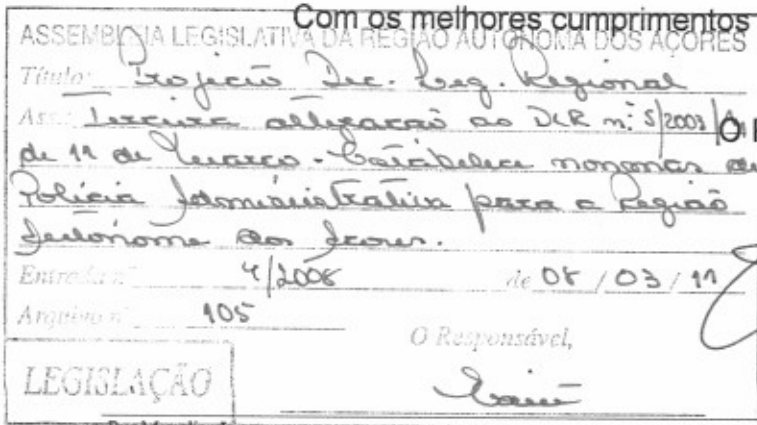 Com os melhores cumprimentos
ASSEMBLEIA LEGISLATIVA DA REGIÃO AUTÓNOMA DOS AÇORES
Título: Projecto Dec. Leg. Regional
Ass.: Terceira alteração ao DLR n.º 5/2003/A,
de 11 de Março - Estabelece normas de
Polícia Administrativa para a Região
Autónoma dos Açores.
Entrada nº 4/2008 de 08 / 03 / 11
Arquivo nº 105
O Responsável,
LEGISLAÇÃO